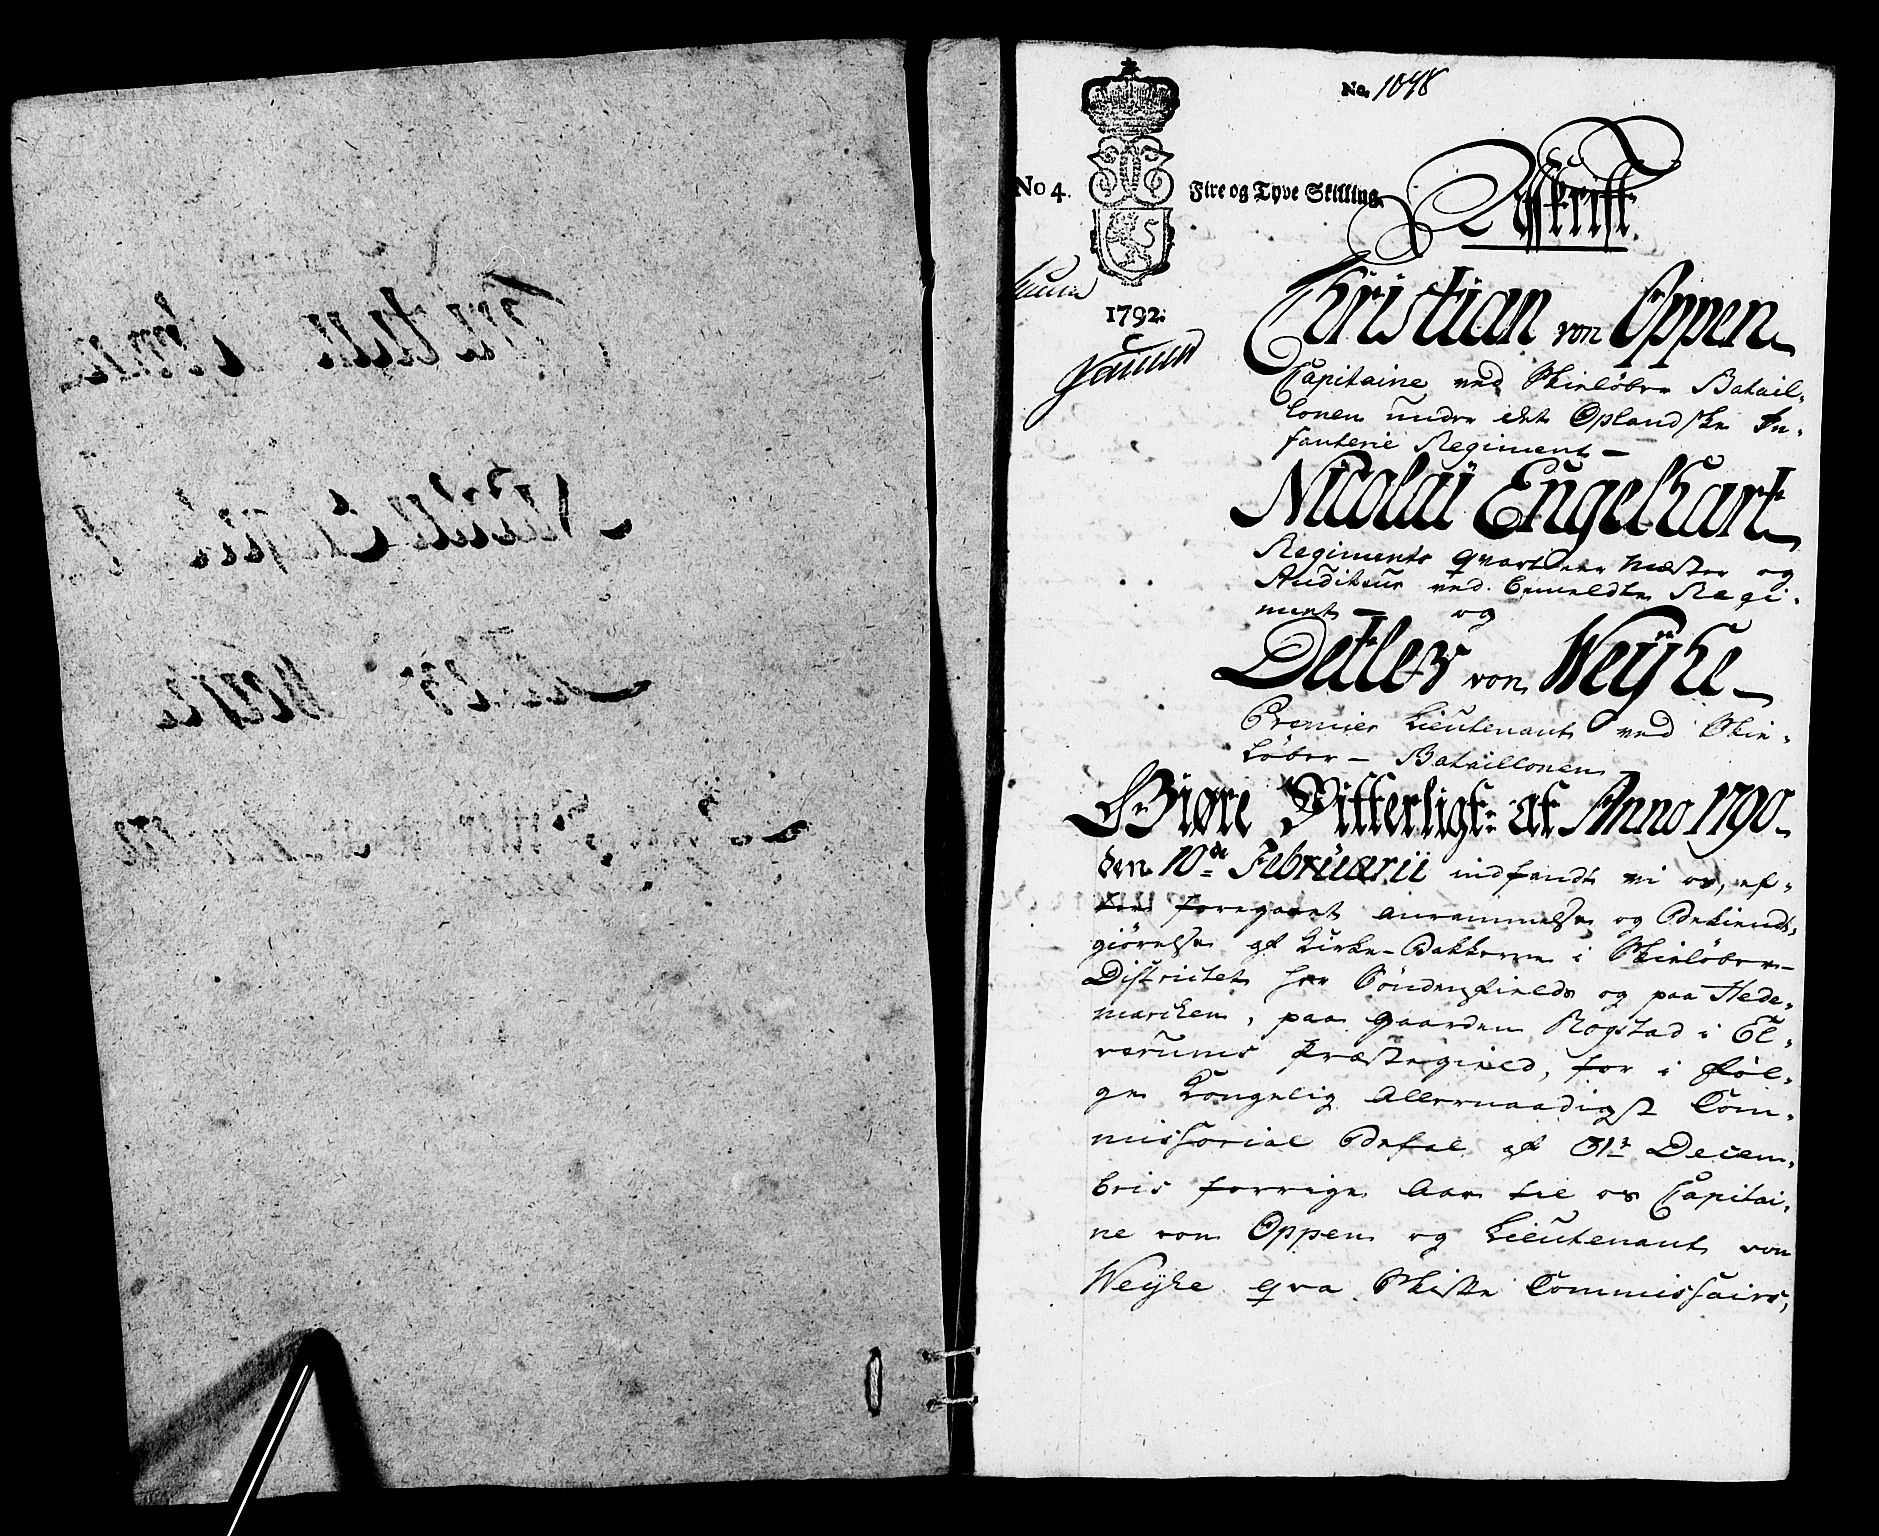 No. 1048
No 4.
Fire og Tyve Skilling.
Afskrift.
1792.
Christian von Oppen
Capitaine ved Skieløber Batail-
lonen under det Oplandske In-
fanterie Regiment –
Nicolai Engelhart
Regiments qvarteer Mæster og
Auditeur ved bemeldte Regi-
ment – og
Detlev von Weyhe
Premier Lieutenant ved Skie-
løber – Bataillonen
Giøre Vitterligt: at Anno 1790
den 10de Februarii indfandt vi os, ef-
ter foregaaet anrammelse og Bekiendt-
giørelse af Kirke-Bakkerne i Skieløber-
Districtet her Søndenfields og paa Hede-
marchen, paa gaarden Rogstad i El-
verums Præstegield, for i Føl-
ge Kongelig allernaadigst Com-
missorial Befal af 31te Decem-
bris forrige Aar til os Capitai-
ne von Oppen og Lieutenant von
Weyhe qva Skifte Commissairs,